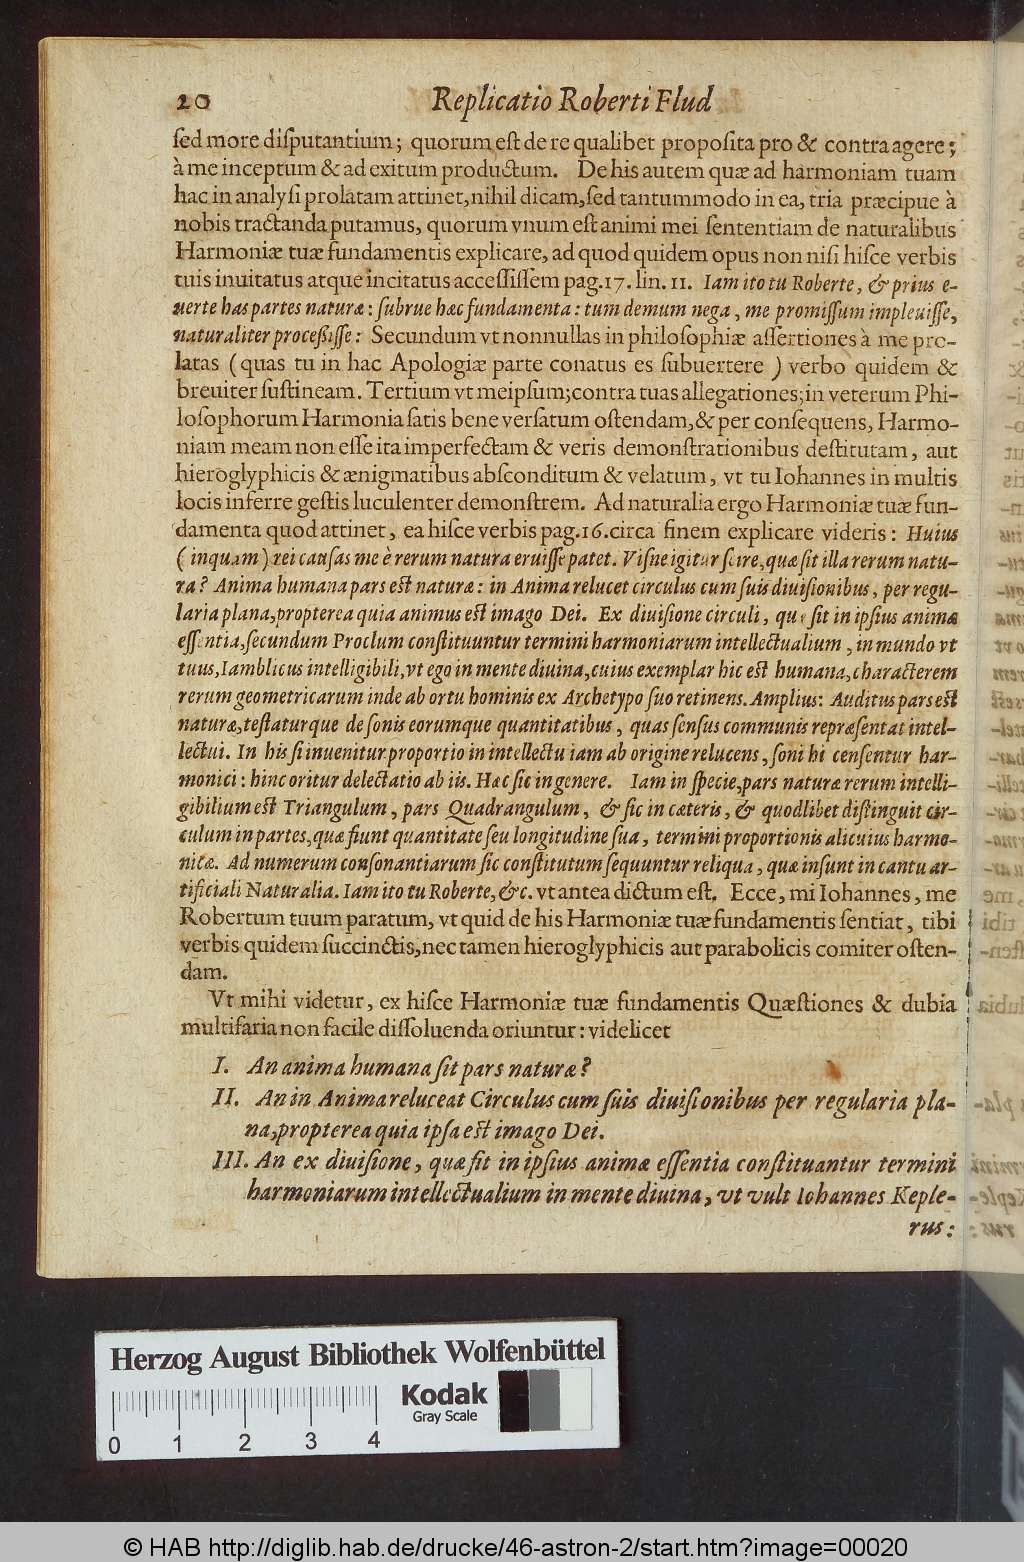 20 Replicatio Roberti Flud
sed more disputantium; quorum est de re qualibet proposita pro & contra agere;
à me inceptum & ad exitum productum. De his autem quæ ad harmoniam tuam
hac in analysi prolatam attinet, nihil dicam, sed tantummodo in ea, tria præcipue à
nobis tractanda putamus, quorum vnum est animi mei sententiam de naturalibus
Harmoniæ tuæ fundamentis explicare, ad quod quidem opus non nisi hisce verbis
tuis inuitatus atque incitatus accessissem pag. 17. lin. 11. Iam ito tu Roberte, & prius e-
uerte has partes naturæ: subrue hæc fundamenta: tum demum nega, me promissum impleuisse,
naturaliter processisse: Secundum vt nonnullas in philosophiæ assertiones à me pro-
latas (quas tu in hac Apologiæ parte conatus es subuertere) verbo quidem &
breuiter sustineam. Tertium vt meipsum; contra tuas allegationes; in veterum Phi-
losophorum Harmonia satis bene versatum ostendam, & per consequens, Harmo-
niam meam non esse ita imperfectam & veris demonstrationibus destitutam, aut
hieroglyphicis & ænigmatibus absconditum & velatum, vt tu Iohannes in multis
locis inferre gestis luculenter demonstrem. Ad naturalia ergo Harmoniæ tuæ fun-
damenta quod attinet, ea hisce verbis pag. 16. circa finem explicare videris: Huius
(inquam) rei causas me è rerum natura eruisse patet. Visne igitur scire, quæ sit illa rerum natu-
ra? Anima humana pars est naturæ: in Anima relucet circulus cum suis diuisionibus, per regu-
laria plana, propterea quia animus est imago Dei. Ex diuisione circuli, quæ sit in ipsius animæ
essentia, secundum Proclum constituuntur termini harmoniarum intellectualium, in mundo vt
tuus, Iamblicus intelligibili, vt ego in mente diuina, cuius exemplar hic est humana, characterem
rerum geometricarum inde ab ortu hominis ex Archetypo suo retinens. Amplius: Auditus pars est
naturæ, testaturque de sonis eorumque quantitatibus, quas sensus communis repræsentat intel-
lectui. In his si inuenitur proportio in intellectu iam ab origine relucens, soni hi censentur har-
monici: hinc oritur delectatio ab iis. Hæc sic in genere. Iam in specie, pars naturæ rerum intelli-
gibilium est Triangulum, pars Quadrangulum, & sic in cæteris, & quodlibet distinguit cir-
culum in partes, quæ fiunt quantitate seu longitudine sua, termini proportionis alicuius harmo-
nicæ. Ad numerum consonantiarum sic constitutum sequuntur reliqua, quæ insunt in cantu ar-
tificiali Naturalia. Iam ito tu Roberte, &c. vt antea dictum est. Ecce, mi Iohannes, me
Robertum tuum paratum, vt quid de his Harmoniæ tuæ fundamentis sentiat, tibi
verbis quidem succinctis, nec tamen hieroglyphicis aut parabolicis comiter osten-
dam.
Vt mihi videtur, ex hisce Harmoniæ tuæ fundamentis Quæstiones & dubia
multifaria non facile dissoluenda oriuntur: videlicet
I. An anima humana sit pars naturæ?
II. An in Anima reluceat Circulus cum suis diuisionibus per regularia pla-
na, propterea quia ipsa est imago Dei.
III. An ex diuisione, quæ fit in ipsius animæ essentia constituantur termini
harmoniarum intellectualium in mente diuina, vt vult Iohannes Keple-
rus:
Herzog August Bibliothek Wolfenbüttel
Kodak
Gray Scale
0 1 2 3 4
© HAB http://diglib.hab.de/drucke/46-astron-2/start.htm?image=00020